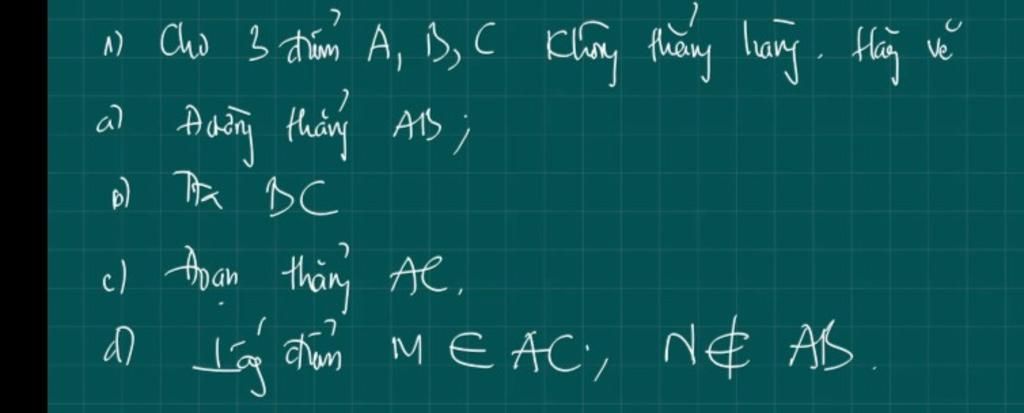 1) Cho 3 điểm A, B, C không thẳng hàng. Hãy vẽ
a) Đường thẳng AB;
b) Tia BC
c) Đoạn thẳng AC.
d) Lấy điểm M ∈ AC; N ∉ AB.